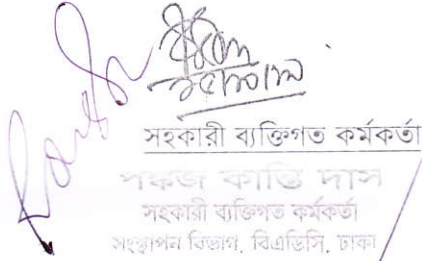 সহকারী ব্যক্তিগত কর্মকর্তা
পঙ্কজ কান্তি দাস
সহকারী ব্যক্তিগত কর্মকর্তা
সংস্থাপন বিভাগ, বিএডিসি, ঢাকা